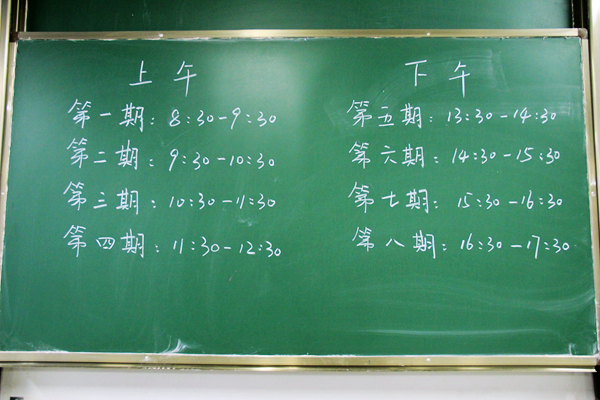 上午
第一期：8:30-9:30
第二期：9:30-10:30
第三期：10:30-11:30
第四期：11:30-12:30
下午
第五期：13:30-14:30
第六期：14:30-15:30
第七期：15:30-16:30
第八期：16:30-17:30